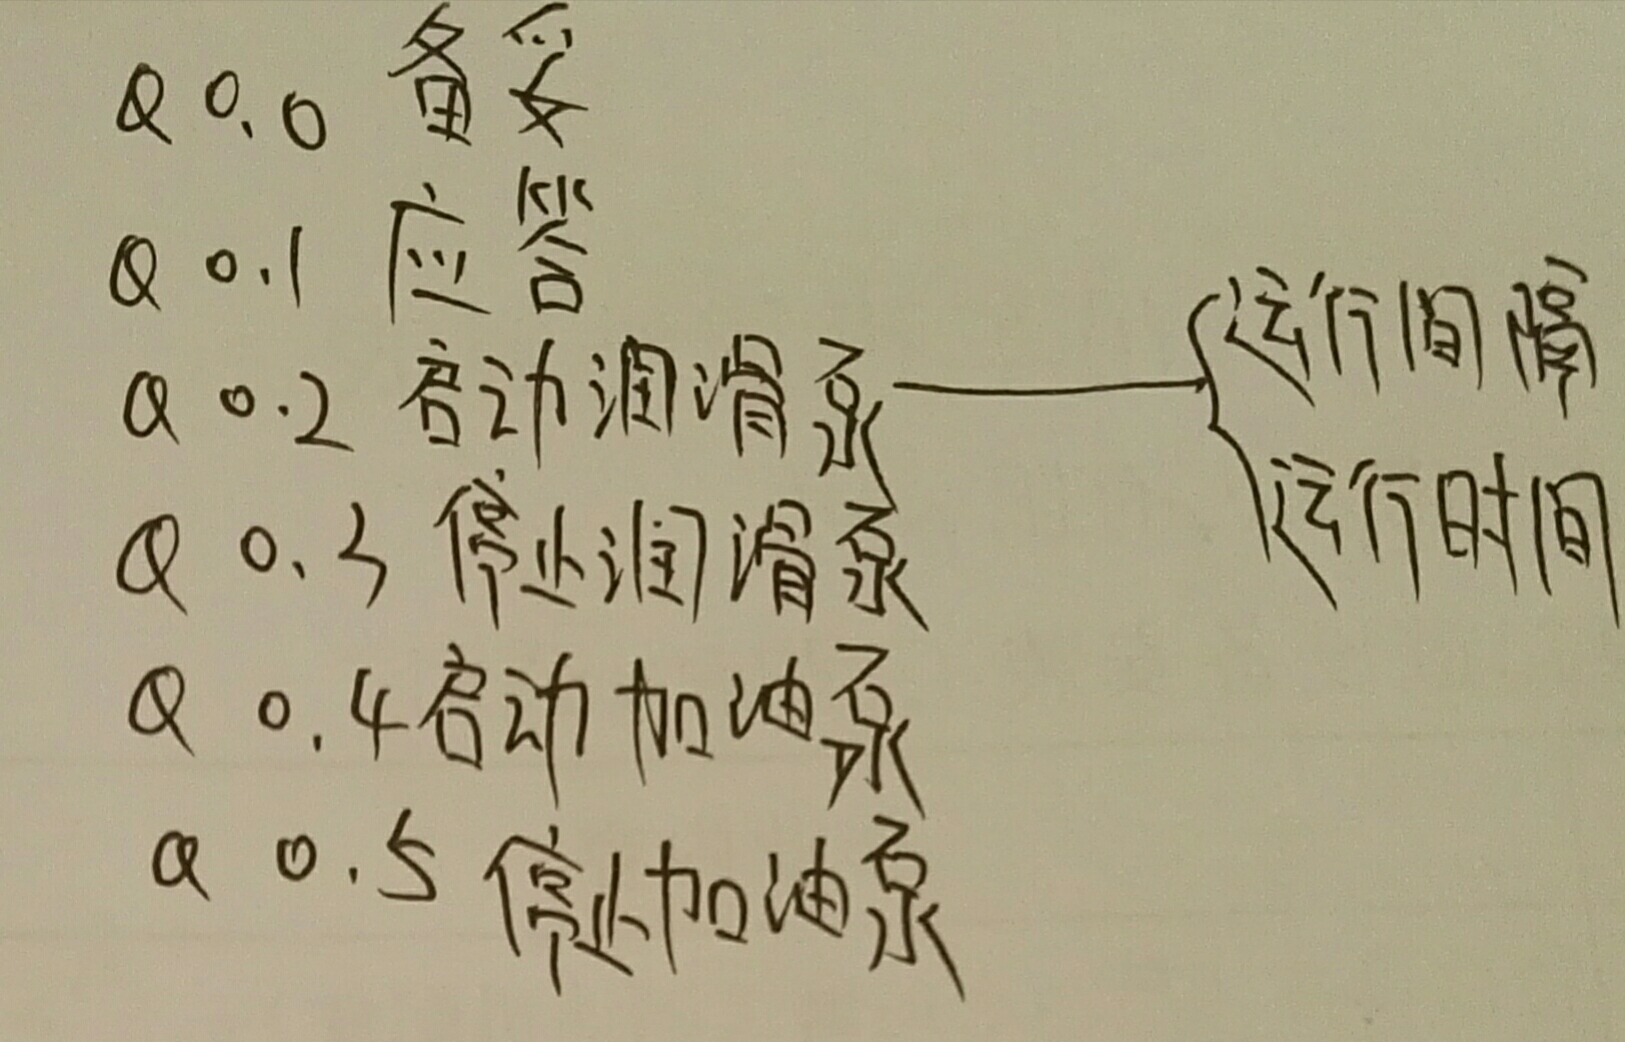 Q 0.0 备妥
Q 0.1 应答
Q 0.2 启动润滑泵
运行间隔
运行时间
Q 0.3 停止润滑泵
Q 0.4 启动加油泵
Q 0.5 停止加油泵